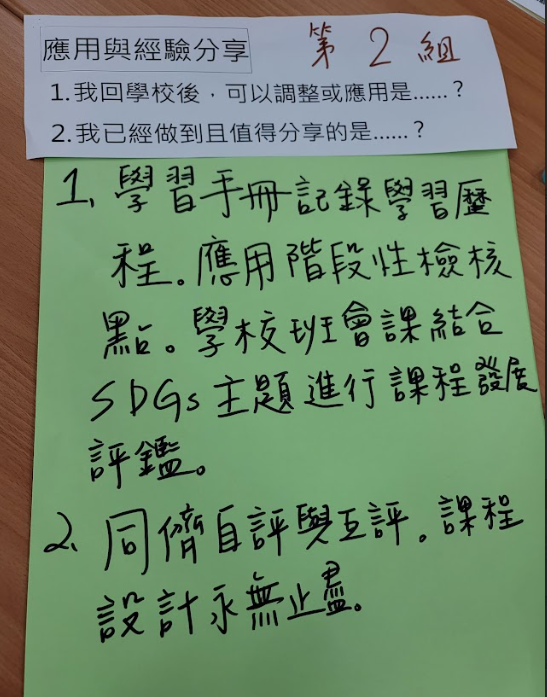 應用與經驗分享 第2組
1.我回學校後，可以調整或應用是......？
2.我已經做到且值得分享的是......？
1、學習手冊記錄學習歷
程。應用階段性檢核
點。學校班會課結合
SDGs主題進行課程發展
評鑑。
2、同儕自評與互評。課程
設計永無止盡。